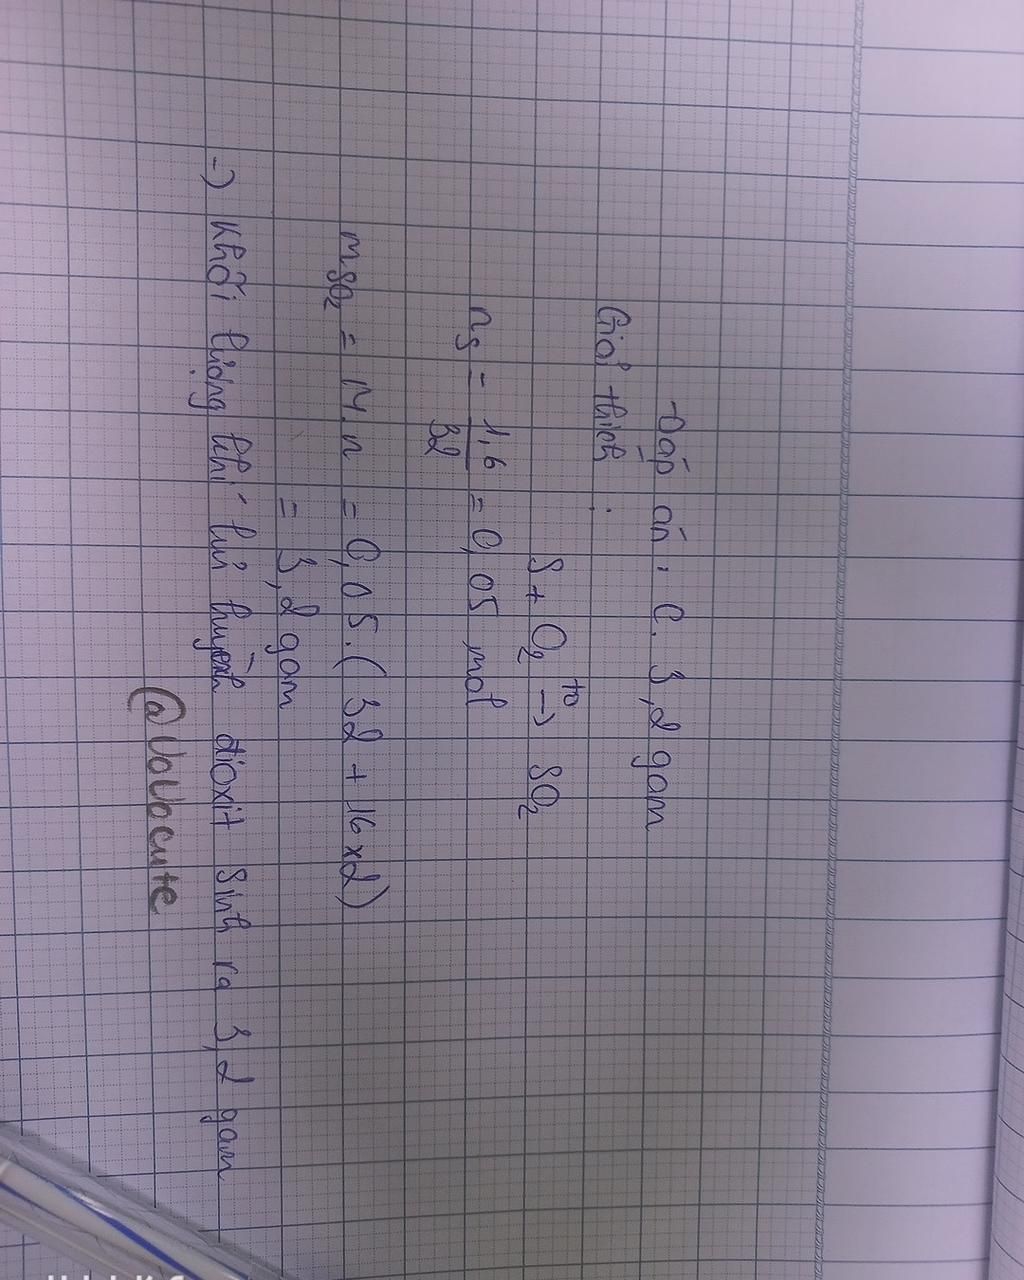 Đáp án: C. 3,2 gam
Giải thích:
S + O₂ →^{t°} SO₂
n_S = 1,6/32 = 0,05 mol
m_{SO₂} = M.n = 0,05.(32 + 16x2)
= 3,2 gam
-> Khối lượng khí lưu huỳnh đioxit sinh ra 3,2 gam
@VoVocute